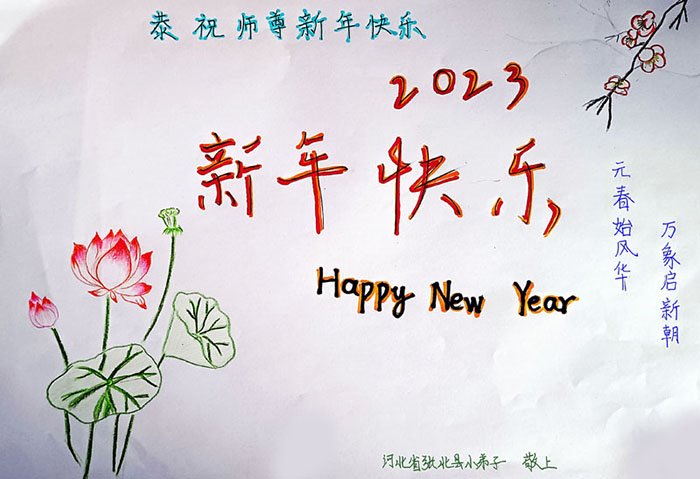 恭祝师尊新年快乐
2023
新年快乐
Happy New Year
元春始风华
万象启新朝
河北省张北县小弟子 敬上